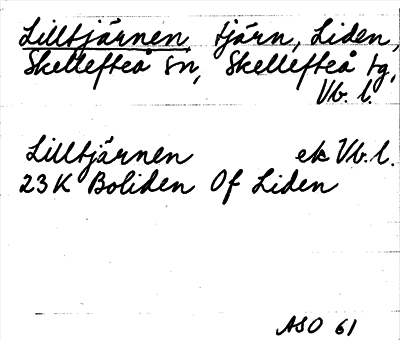 Lilltjärnen, tjärn, Liden,
Skellefteå sn, Skellefteå tg,
Vb. l.
Lilltjärnen ek Vb. l.
23K Boliden 0f Liden
ASO 61